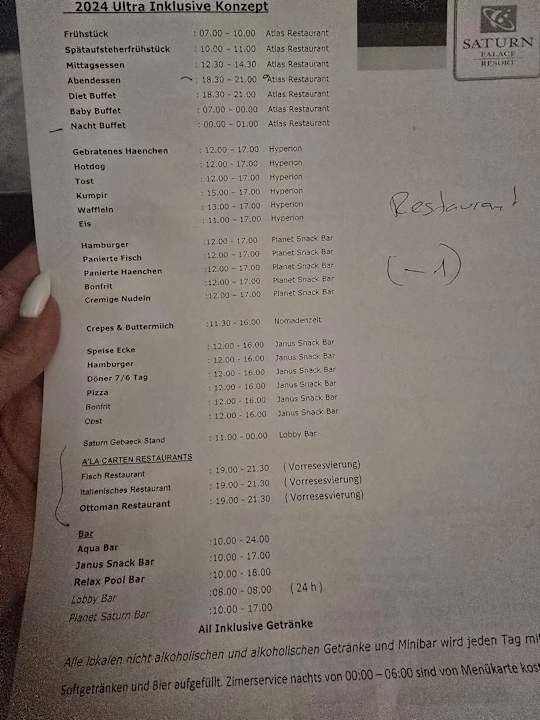 2024 Ultra Inklusive Konzept
SATURN
PALACE
RESORT
Frühstück : 07.00 – 10.00 Atlas Restaurant
Spätaufsteherfrühstück : 10.00 – 11.00 Atlas Restaurant
Mittagsessen : 12.30 – 14.30 Atlas Restaurant
Abendessen : 18.30 – 21.00 Atlas Restaurant
Diet Buffet : 18.30 – 21.00 Atlas Restaurant
Baby Buffet : 07.00 – 00.00 Atlas Restaurant
Nacht Buffet : 00.00 – 01.00 Atlas Restaurant
Gebratenes Haenchen : 12.00 – 17.00 Hyperion
Hotdog : 12.00 - 17.00 Hyperion
Tost : 12.00 – 17.00 Hyperion
Kumpir : 15.00 – 17.00 Hyperion
Waffleln : 13.00 – 17.00 Hyperion
Eis : 11.00 – 17.00 Hyperion
Restaurant
(-1)
Hamburger :12.00 - 17.00 Planet Snack Bar
Panierte Fisch :12.00 – 17.00 Planet Snack Bar
Panierte Haenchen :12.00 – 17.00 Planet Snack Bar
Bonfrit :12.00 – 17.00 Planet Snack Bar
Cremige Nudeln :12.00 – 17.00 Planet Snack Bar
Crepes & Buttermilch :11.30 – 16.00 Nomadenzelt
Speise Ecke : 12.00 - 16.00 Janus Snack Bar
Hamburger : 12.00 - 16.00 Janus Snack Bar
Döner 7/6 Tag : 12.00 - 16.00 Janus Snack Bar
Pizza : 12.00 - 16.00 Janus Snack Bar
Bonfrit : 12.00 - 16.00 Janus Snack Bar
Obst : 12.00 - 16.00 Janus Snack Bar
Saturn Gebaeck Stand : 11.00 – 00.00 Lobby Bar
A'LA CARTEN RESTAURANTS
Fisch Restaurant : 19.00 – 21.30 ( Vorresesvierung)
Italienisches Restaurant : 19.00 – 21.30 ( Vorresesvierung)
Ottoman Restaurant : 19.00 – 21.30 ( Vorresesvierung)
Bar
Aqua Bar :10.00 - 24.00
Janus Snack Bar :10.00 - 17.00
Relax Pool Bar :10.00 - 18.00
Lobby Bar :08.00 – 08.00 ( 24 h )
Planet Saturn Bar :10.00 - 17.00
All Inklusive Getränke
Alle lokalen nicht alkoholischen und alkoholischen Getränke und Minibar wird jeden Tag mit
Softgetränken und Bier aufgefüllt. Zimerservice nachts von 00:00 – 06:00 sind von Menükarte kost